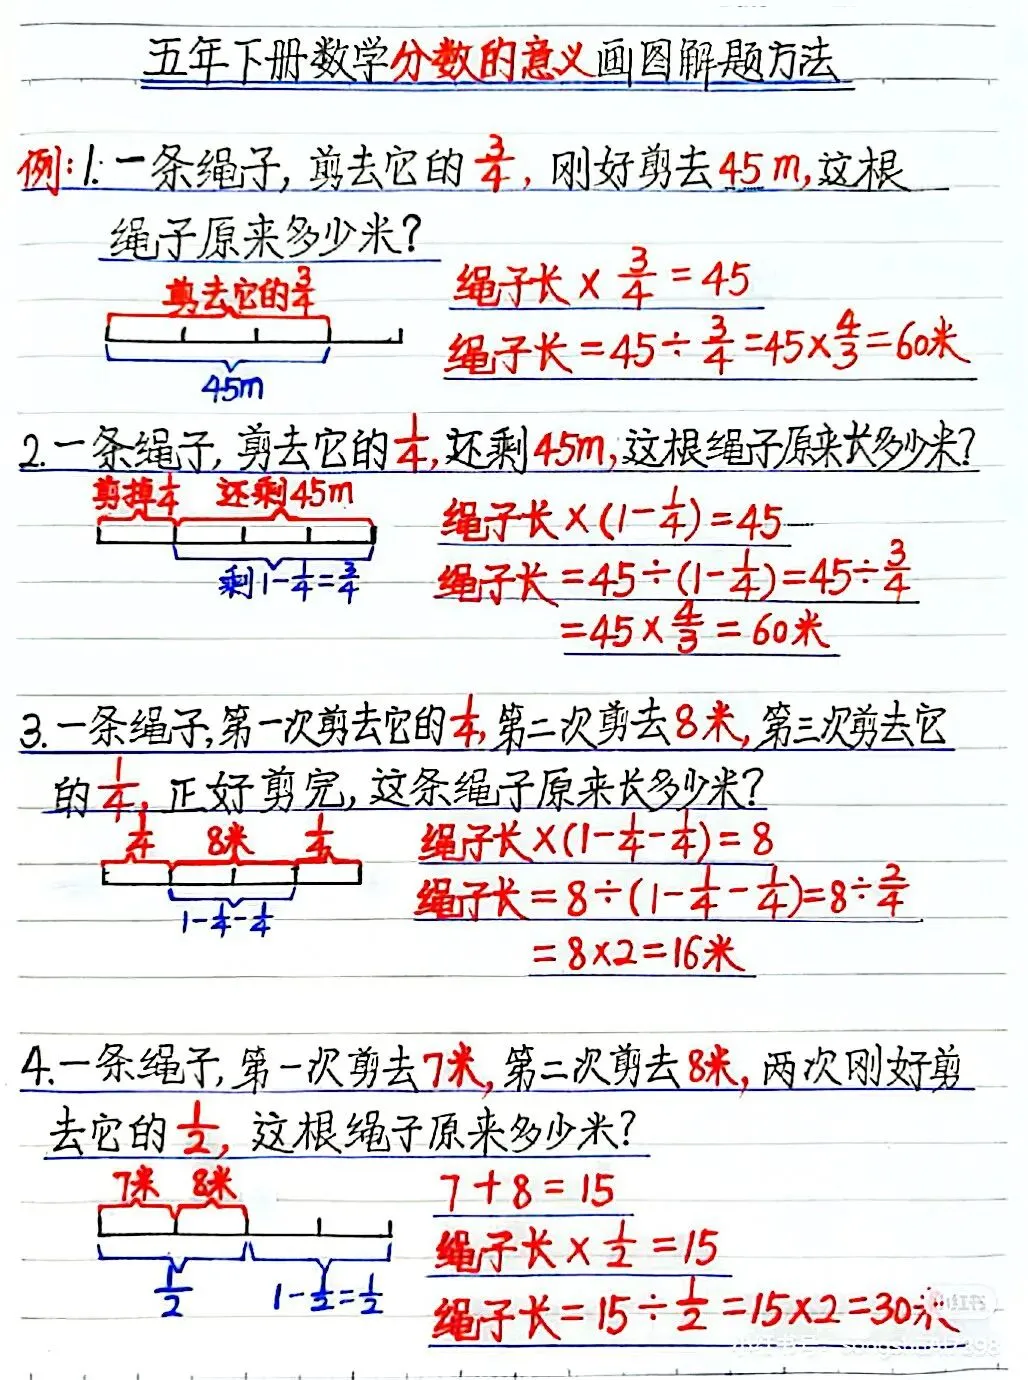 五年下册数学分数的意义画图解题方法
例:1.一条绳子,剪去它的3/4,刚好剪去45m,这根
绳子原来多少米?
剪去它的3/4
45m
绳子长×3/4=45
绳子长=45÷3/4=45×4/3=60米
2.一条绳子,剪去它的1/4,还剩45m,这根绳子原来长多少米?
剪掉1/4 还剩45m
剩1-1/4=3/4
绳子长×(1-1/4)=45
绳子长=45÷(1-1/4)=45÷3/4
=45×4/3=60米
3.一条绳子,第一次剪去它的1/4,第二次剪去8米,第三次剪去它
的1/4,正好剪完,这条绳子原来长多少米?
1/4 8米 1/4
1-1/4-1/4
绳子长×(1-1/4-1/4)=8
绳子长=8÷(1-1/4-1/4)=8÷2/4
=8×2=16米
4.一条绳子,第一次剪去7米,第二次剪去8米,两次刚好剪
去它的1/2,这根绳子原来多少米?
7米 8米
1/2 1-1/2=1/2
7+8=15
绳子长×1/2=15
绳子长=15÷1/2=15×2=30米
小红书